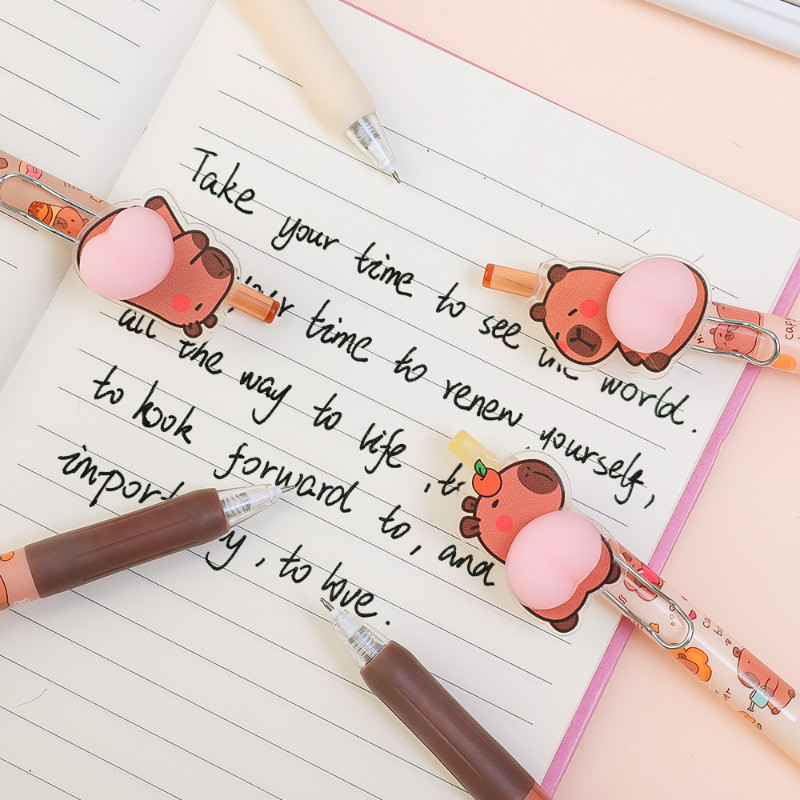 Take your time to see the world.
your time to renew yourself,
all the way to life
to look forward to, and
to love.